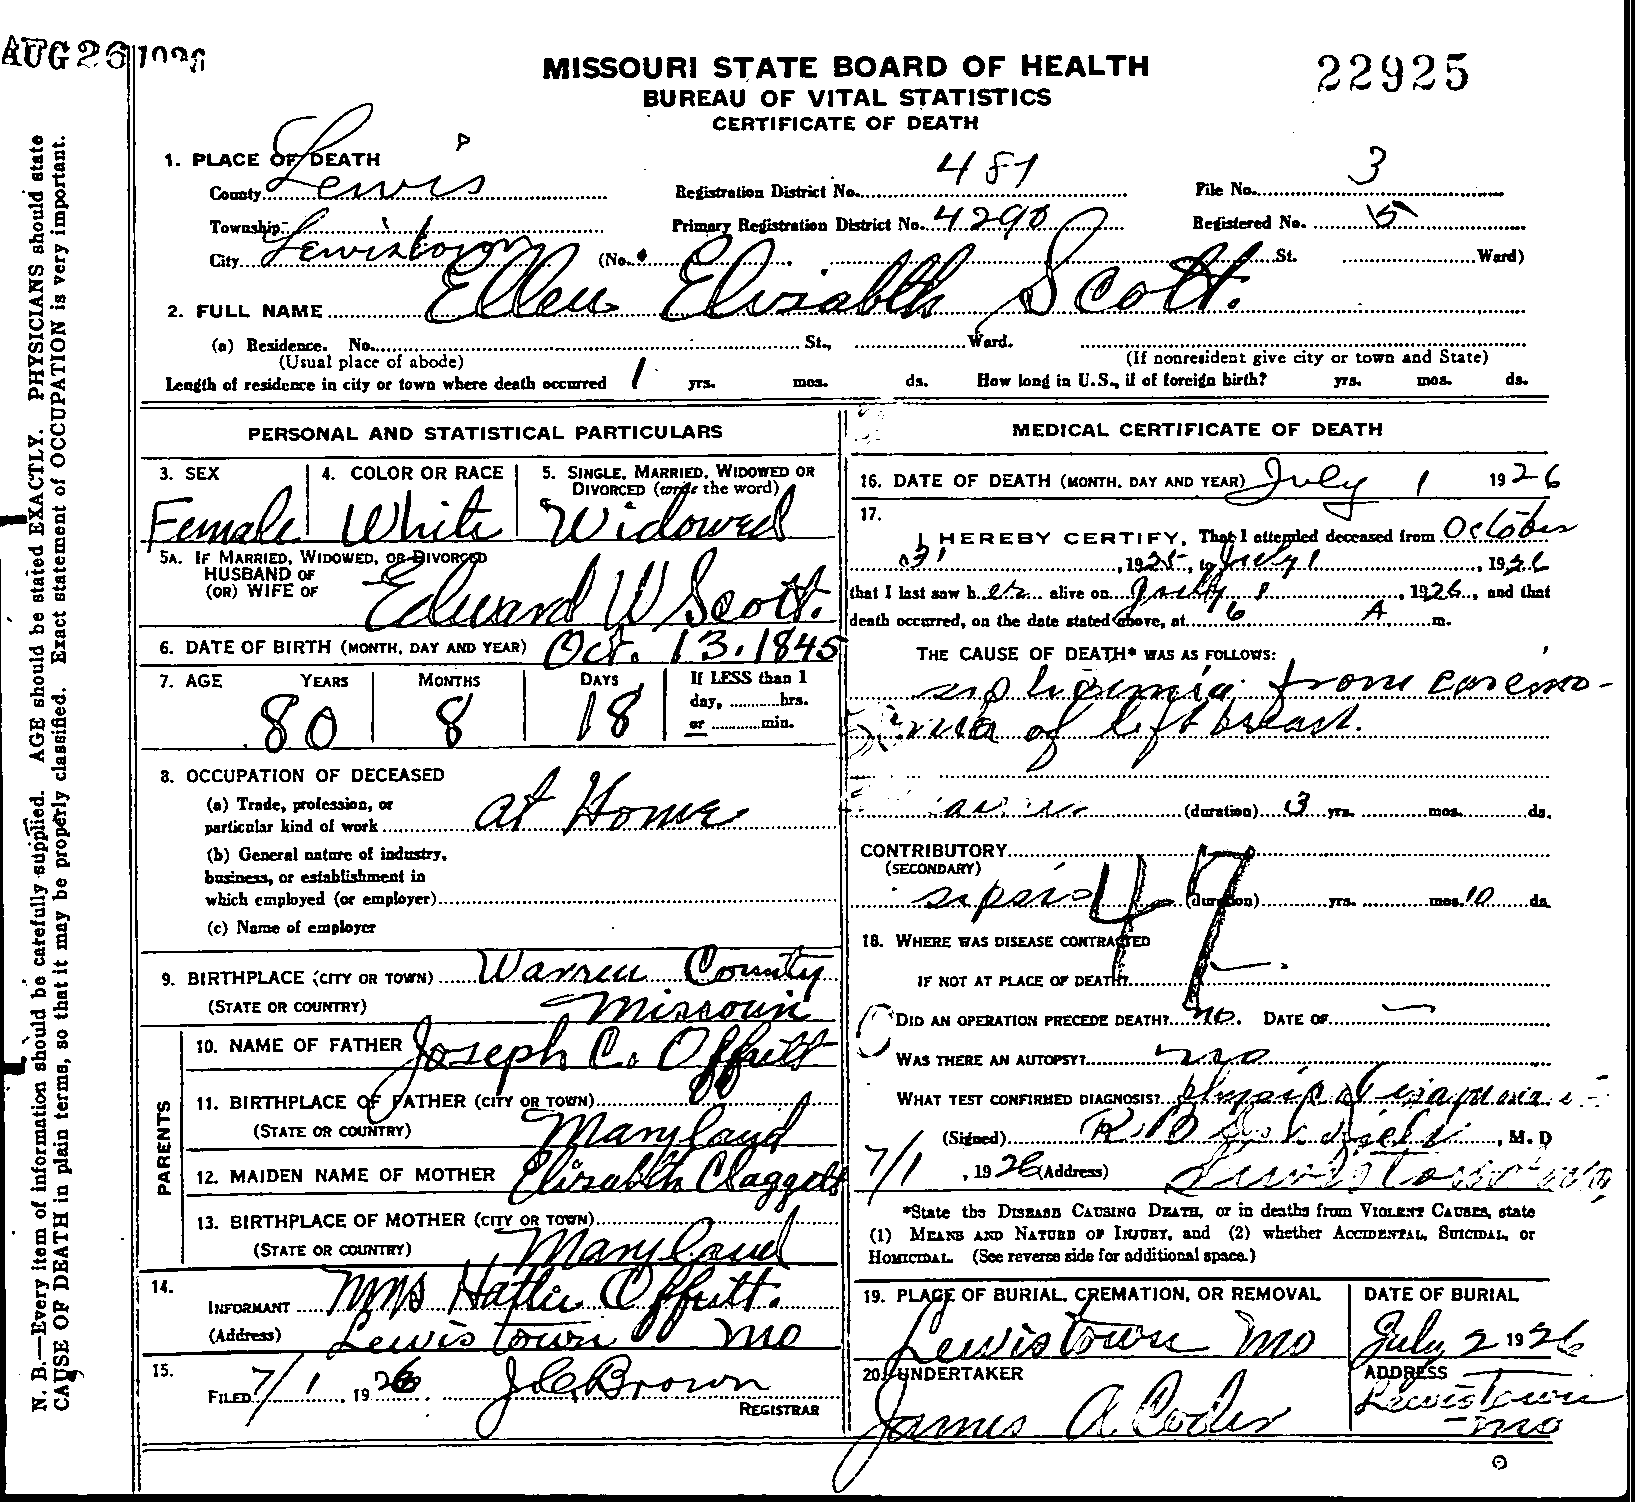 AUG 26 1926
MISSOURI STATE BOARD OF HEALTH
BUREAU OF VITAL STATISTICS
CERTIFICATE OF DEATH
22925
1. PLACE OF DEATH
County Lewis Registration District No. 481 File No. 3
Township Primary Registration District No. 4290 Registered No. 15
City Lewistown (No. St. Ward)
2. FULL NAME Ellen Elizabeth Scott.
(a) Residence. No. St., Ward.
(Usual place of abode) (If nonresident give city or town and State)
Length of residence in city or town where death occurred 1 yrs. mos. ds. How long in U.S., if of foreign birth? yrs. mos. ds.
PERSONAL AND STATISTICAL PARTICULARS
3. SEX 4. COLOR OR RACE 5. SINGLE, MARRIED, WIDOWED OR
DIVORCED (write the word)
Female White Widowed
5A. IF MARRIED, WIDOWED, OR DIVORCED
HUSBAND OF
(OR) WIFE OF Edward W Scott.
6. DATE OF BIRTH (MONTH, DAY AND YEAR) Oct. 13. 1845
7. AGE YEARS MONTHS DAYS If LESS than 1
day, hrs.
or min.
80 8 18
8. OCCUPATION OF DECEASED
(a) Trade, profession, or
particular kind of work at Home
(b) General nature of industry,
business, or establishment in
which employed (or employer)
(c) Name of employer
9. BIRTHPLACE (CITY OR TOWN) Warren County
(STATE OR COUNTRY) Missouri
PARENTS
10. NAME OF FATHER Joseph C. Offutt
11. BIRTHPLACE OF FATHER (CITY OR TOWN)
(STATE OR COUNTRY) Maryland
12. MAIDEN NAME OF MOTHER Elizabeth Claggett
13. BIRTHPLACE OF MOTHER (CITY OR TOWN)
(STATE OR COUNTRY) Maryland
14.
INFORMANT Mrs Hattie Offutt.
(Address) Lewistown Mo
15.
FILED 7/1, 1926 J C Brown
REGISTRAR
MEDICAL CERTIFICATE OF DEATH
16. DATE OF DEATH (MONTH, DAY AND YEAR) July 1 1926
17.
I HEREBY CERTIFY, That I attended deceased from October
31, 1925, to July 1, 1926
that I last saw her alive on July 1, 1926, and that
death occurred, on the date stated above, at 6 A m.
THE CAUSE OF DEATH* WAS AS FOLLOWS:
from
of left breast.
(duration) 3 yrs. mos. ds.
CONTRIBUTORY
(SECONDARY)
sepsis (duration) yrs. mos. 10 ds.
47
18. WHERE WAS DISEASE CONTRACTED
IF NOT AT PLACE OF DEATH?
DID AN OPERATION PRECEDE DEATH? no. DATE OF
WAS THERE AN AUTOPSY? no
WHAT TEST CONFIRMED DIAGNOSIS?
(Signed) R. B , M. D
7/1, 1926 (Address) Lewistown Mo,
*State the DISEASE CAUSING DEATH, or in deaths from VIOLENT CAUSES, state
(1) MEANS AND NATURE OF INJURY, and (2) whether ACCIDENTAL, SUICIDAL, or
HOMICIDAL. (See reverse side for additional space.)
19. PLACE OF BURIAL, CREMATION, OR REMOVAL DATE OF BURIAL
Lewistown Mo July 2 1926
20. UNDERTAKER ADDRESS
James A. Coder Lewistown
Mo
N. B.—Every item of information should be carefully supplied. AGE should be stated EXACTLY. PHYSICIANS should state
CAUSE OF DEATH in plain terms, so that it may be properly classified. Exact statement of OCCUPATION is very important.